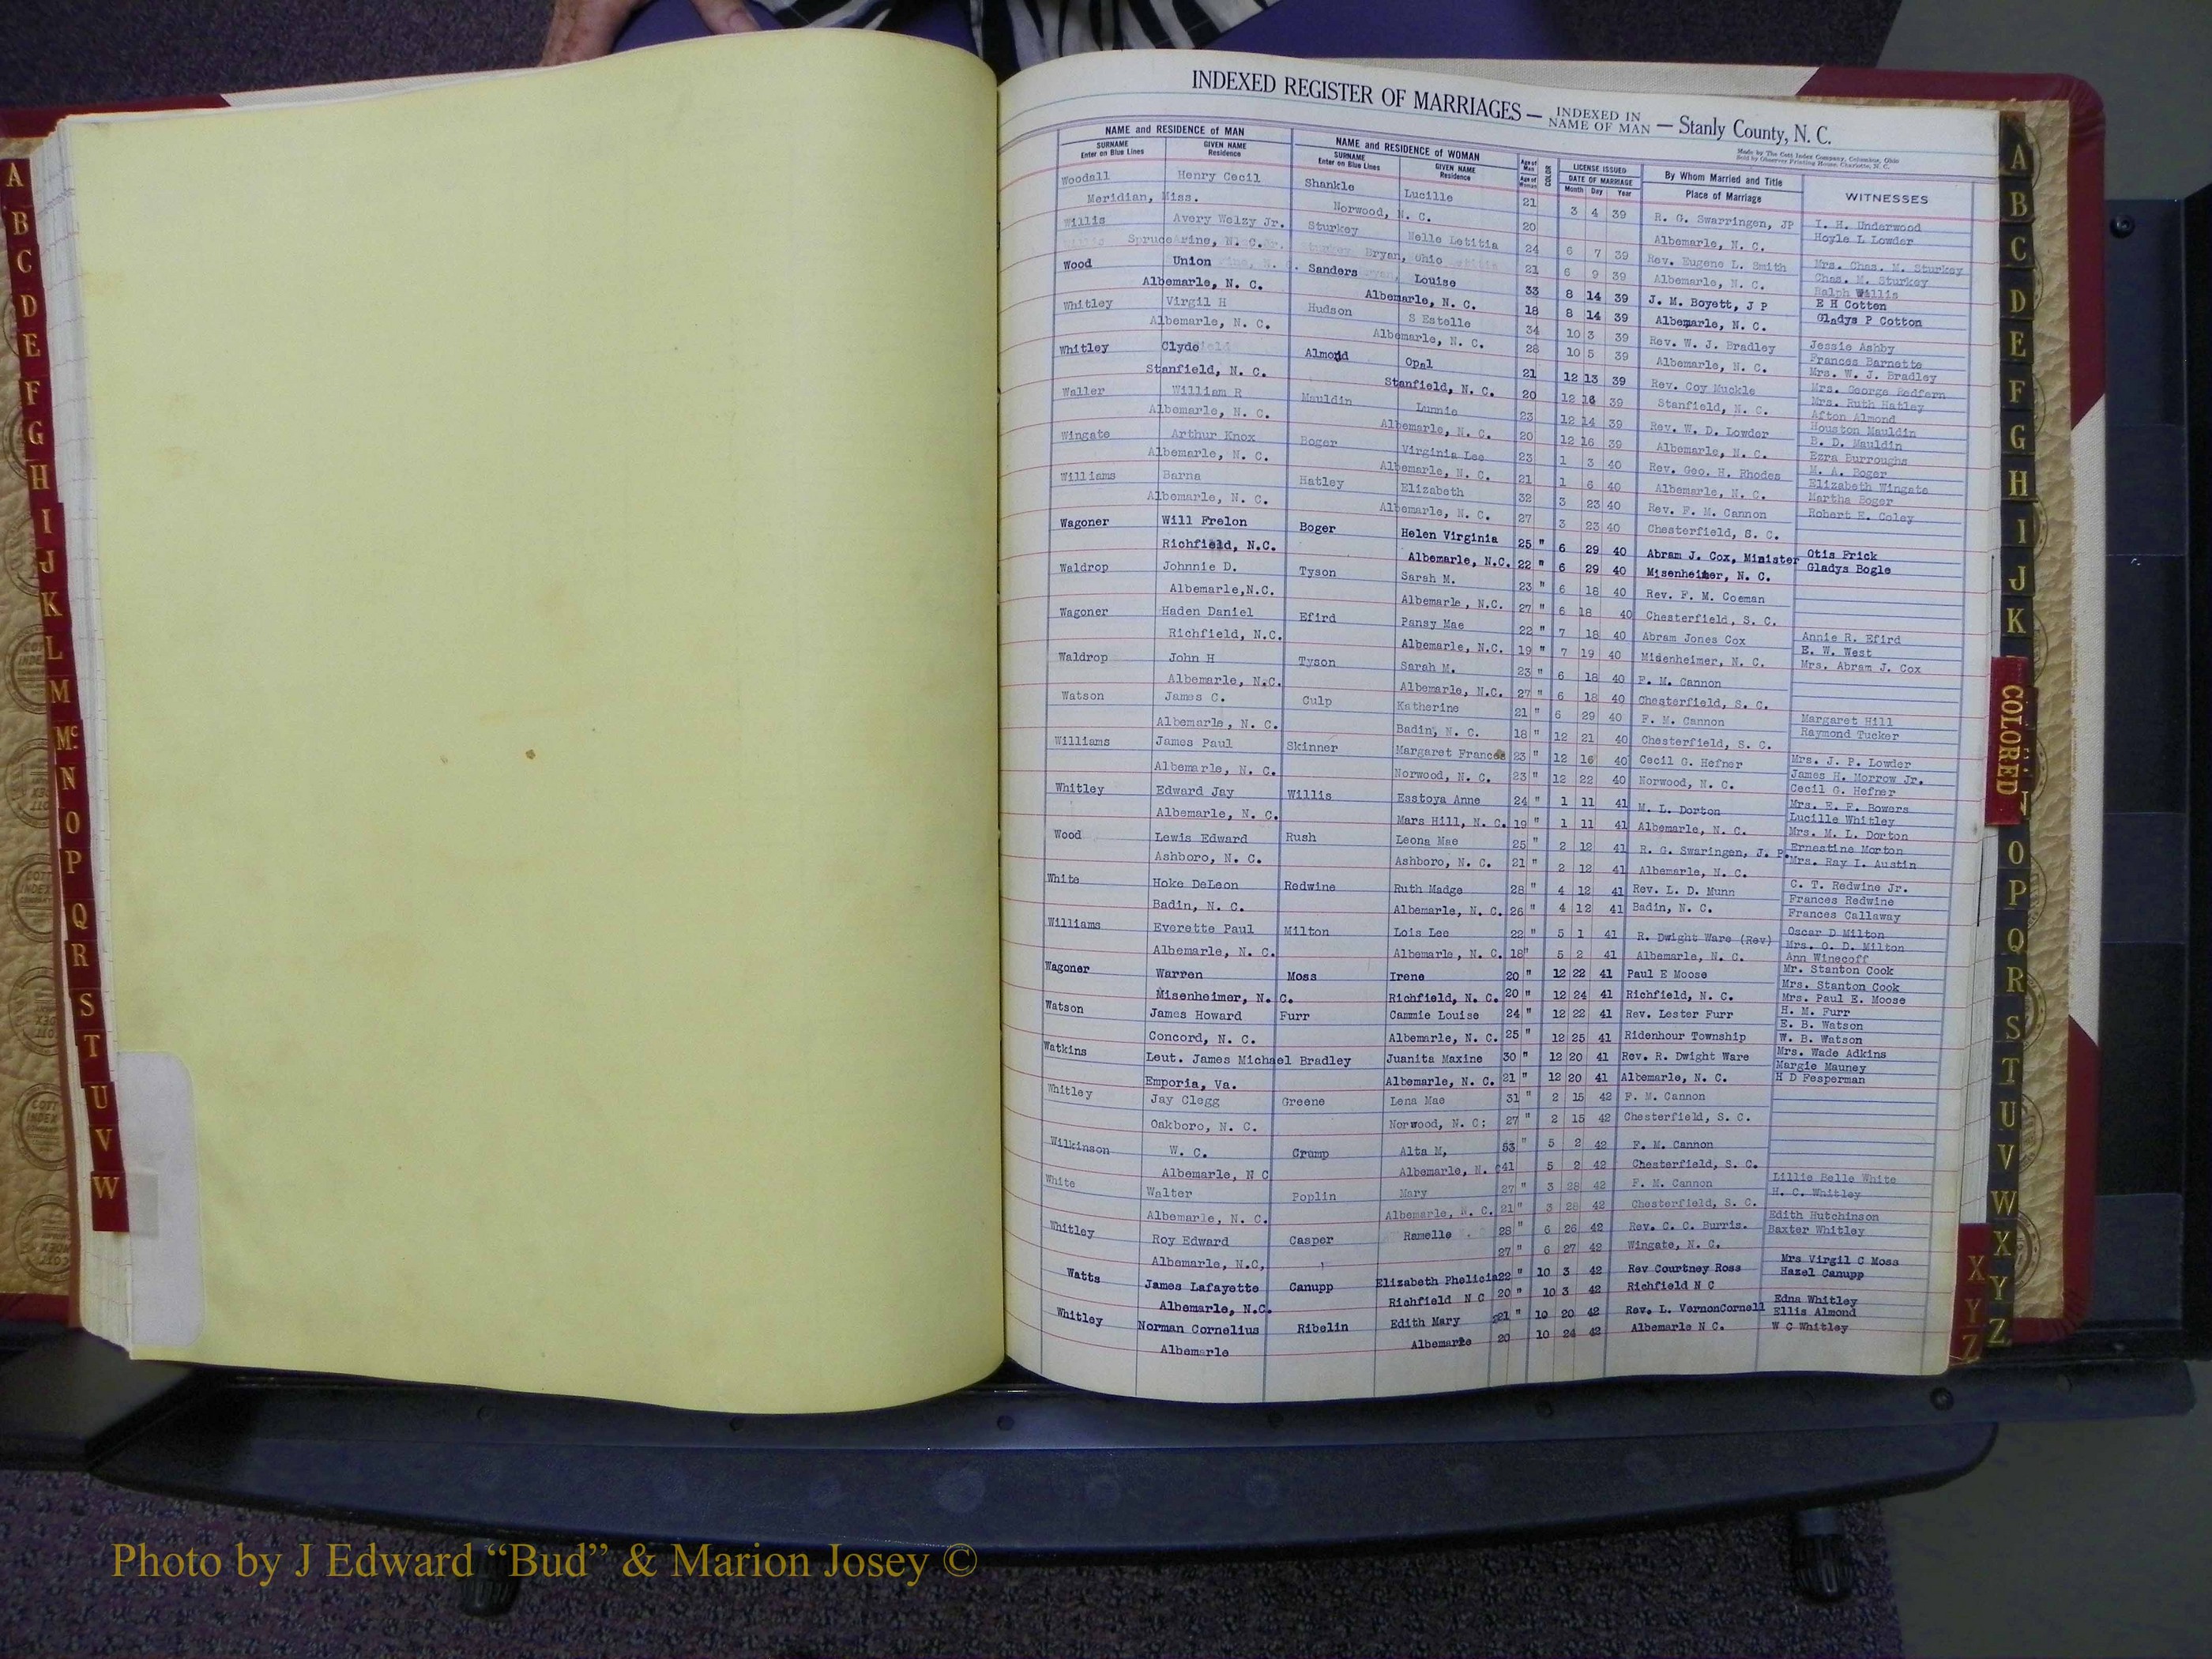 INDEXED REGISTER OF MARRIAGES — INDEXED IN NAME OF MAN — Stanly County, N. C.
Made by The Cott Index Company, Columbus, Ohio
Sold by Observer Printing House, Charlotte, N. C.
NAME and RESIDENCE of MAN NAME and RESIDENCE of WOMAN Age of Man Age of Woman COLOR LICENSE ISSUED DATE OF MARRIAGE By Whom Married and Title WITNESSES
SURNAME Enter on Blue Lines GIVEN NAME Residence SURNAME Enter on Blue Lines GIVEN NAME Residence Month Day Year Place of Marriage
Woodall Henry Cecil Shankle Lucille 21 3 4 39 R. G. Swarringen, JP I. H. Underwood
Meridian, Miss. Norwood, N. C. 20 Albemarle, N. C. Hoyle L Lowder
Willis Avery Welzy Jr. Sturkey Nelle Letitia 24 6 7 39 Rev. Eugene L. Smith Mrs. Chas. M. Sturkey
Spruce Pine, N. C. Bryan, Ohio 21 6 9 39 Albemarle, N. C. Chas. M. Sturkey
Ralph Willis
Wood Union Sanders Louise 33 8 14 39 J. M. Boyett, J P E H Cotten
Albemarle, N. C. Albemarle, N. C. 18 8 14 39 Albemarle, N. C. Gladys P Cotton
Whitley Virgil H Hudson S Estelle 34 10 3 39 Rev. W. J. Bradley Jessie Ashby
Albemarle, N. C. Albemarle, N. C. 28 10 5 39 Albemarle, N. C. Frances Barnette
Mrs. W. J. Bradley
Whitley Clyde Almond Opal 21 12 13 39 Rev. Coy Muckle Mrs. George Redfern
Stanfield, N. C. Stanfield, N. C. 20 12 16 39 Stanfield, N. C. Mrs. Ruth Hatley
Afton Almond
Waller William R Mauldin Lunnie 23 12 14 39 Rev. W. D. Lowder Houston Mauldin
Albemarle, N. C. Albemarle, N. C. 20 12 16 39 Albemarle, N. C. B. D. Mauldin
Ezra Burroughs
Wingate Arthur Knox Boger Virginia Lee 23 1 3 40 Rev. Geo. H. Rhodes M. A. Boger
Albemarle, N. C. Albemarle, N. C. 21 1 6 40 Albemarle, N. C. Elizabeth Wingate
Martha Boger
Williams Barna Hatley Elizabeth 32 3 23 40 Rev. F. M. Cannon Robert E. Coley
Albemarle, N. C. Albemarle, N. C. 27 3 23 40 Chesterfield, S. C.
Wagoner Will Frelon Boger Helen Virginia 25 " 6 29 40 Abram J. Cox, Minister Otis Frick
Richfield, N.C. Albemarle, N.C. 22 " 6 29 40 Misenheimer, N. C. Gladys Bogle
Waldrop Johnnie D. Tyson Sarah M. 23 " 6 18 40 Rev. F. M. Coeman
Albemarle,N.C. Albemarle, N.C. 27 " 6 18 40 Chesterfield, S. C.
Wagoner Haden Daniel Efird Pansy Mae 22 " 7 18 40 Abram Jones Cox Annie R. Efird
Richfield, N.C. Albemarle, N.C. 19 " 7 19 40 Midenheimer, N. C. E. W. West
Mrs. Abram J. Cox
Waldrop John H Tyson Sarah M. 23 " 6 18 40 F. M. Cannon
Albemarle, N.C. Albemarle, N.C. 27 " 6 18 40 Chesterfield, S. C.
Watson James C. Culp Katherine 21 " 6 29 40 F. M. Cannon Margaret Hill
Albemarle, N. C. Badin, N. C. 18 " 12 21 40 Chesterfield, S. C. Raymond Tucker
Williams James Paul Skinner Margaret Frances 23 " 12 16 40 Cecil G. Hefner Mrs. J. P. Lowder
Albemarle, N. C. Norwood, N. C. 23 " 12 22 40 Norwood, N. C. James H. Morrow Jr.
Cecil G. Hefner
Whitley Edward Jay Willis Esstoya Anne 24 " 1 11 41 M. L. Dorton Mrs. E. F. Bowers
Albemarle, N. C. Mars Hill, N. C. 19 " 1 11 41 Albemarle, N. C. Lucille Whitley
Mrs. M. L. Dorton
Wood Lewis Edward Rush Leona Mae 25 " 2 12 41 R. G. Swaringen, J. P. Ernestine Morton
Ashboro, N. C. Ashboro, N. C. 21 " 2 12 41 Albemarle, N. C. Mrs. Ray I. Austin
White Hoke DeLeon Redwine Ruth Madge 28 " 4 12 41 Rev. L. D. Munn C. T. Redwine Jr.
Badin, N. C. Albemarle, N. C. 26 " 4 12 41 Badin, N. C. Frances Redwine
Frances Callaway
Williams Everette Paul Milton Lois Lee 22 " 5 1 41 R. Dwight Ware (Rev) Oscar D Milton
Albemarle, N. C. Albemarle, N. C. 18" 5 2 41 Albemarle, N. C. Mrs. O. D. Milton
Ann Winecoff
Wagoner Warren Moss Irene 20 " 12 22 41 Paul E Moose Mr. Stanton Cook
Misenheimer, N. C. Richfield, N. C. 20 " 12 24 41 Richfield, N. C. Mrs. Stanton Cook
Mrs. Paul E. Moose
Watson James Howard Furr Cammie Louise 24 " 12 22 41 Rev. Lester Furr H. M. Furr
Concord, N. C. Albemarle, N. C. 25 " 12 25 41 Ridenhour Township E. B. Watson
W. B. Watson
Watkins Leut. James Michael Bradley Juanita Maxine 30 " 12 20 41 Rev. R. Dwight Ware Mrs. Wade Adkins
Emporia, Va. Albemarle, N. C. 21 " 12 20 41 Albemarle, N. C. Margie Mauney
H D Fesperman
Whitley Jay Clegg Greene Lena Mae 31 " 2 15 42 F. M. Cannon
Oakboro, N. C. Norwood, N. C: 27 " 2 15 42 Chesterfield, S. C.
Wilkinson W. C. Crump Alta M, 53 " 5 2 42 F. M. Cannon
Albemarle, N C Albemarle, N. C 41 5 2 42 Chesterfield, S. C.
White Walter Poplin Mary 27 " 3 28 42 F. M. Cannon Lillie Belle White
Albemarle, N. C. Albemarle, N. C. 21 " 3 28 42 Chesterfield, S. C. H. C. Whitley
Whitley Roy Edward Casper Ramelle 28 " 6 26 42 Rev. C. C. Burris. Edith Hutchinson
Albemarle, N.C, 27 " 6 27 42 Wingate, N. C. Baxter Whitley
Watts James Lafayette Canupp Elizabeth Phelicia 22 " 10 3 42 Rev Courtney Ross Mrs Virgil C Moss
Albemarle, N.C. Richfield N C 20 " 10 3 42 Richfield N C Hazel Canupp
Whitley Norman Cornelius Ribelin Edith Mary 21 " 10 20 42 Rev. L. VernonCornell Edna Whitley
Albemarle Albemarle 20 10 24 42 Albemarle N C. Ellis Almond
W C Whitley
A
B
C
D
E
F
G
H
I
J
K
L
M
Mc
N
O
P
Q
R
S
T
U
V
W
A
B
C
D
E
F
G
H
I
J
K
COLORED
N
O
P
Q
R
S
T
U
V
W
X
Y
Z
X
Y
Z
COTT
INDEX
Photo by J Edward “Bud” & Marion Josey ©